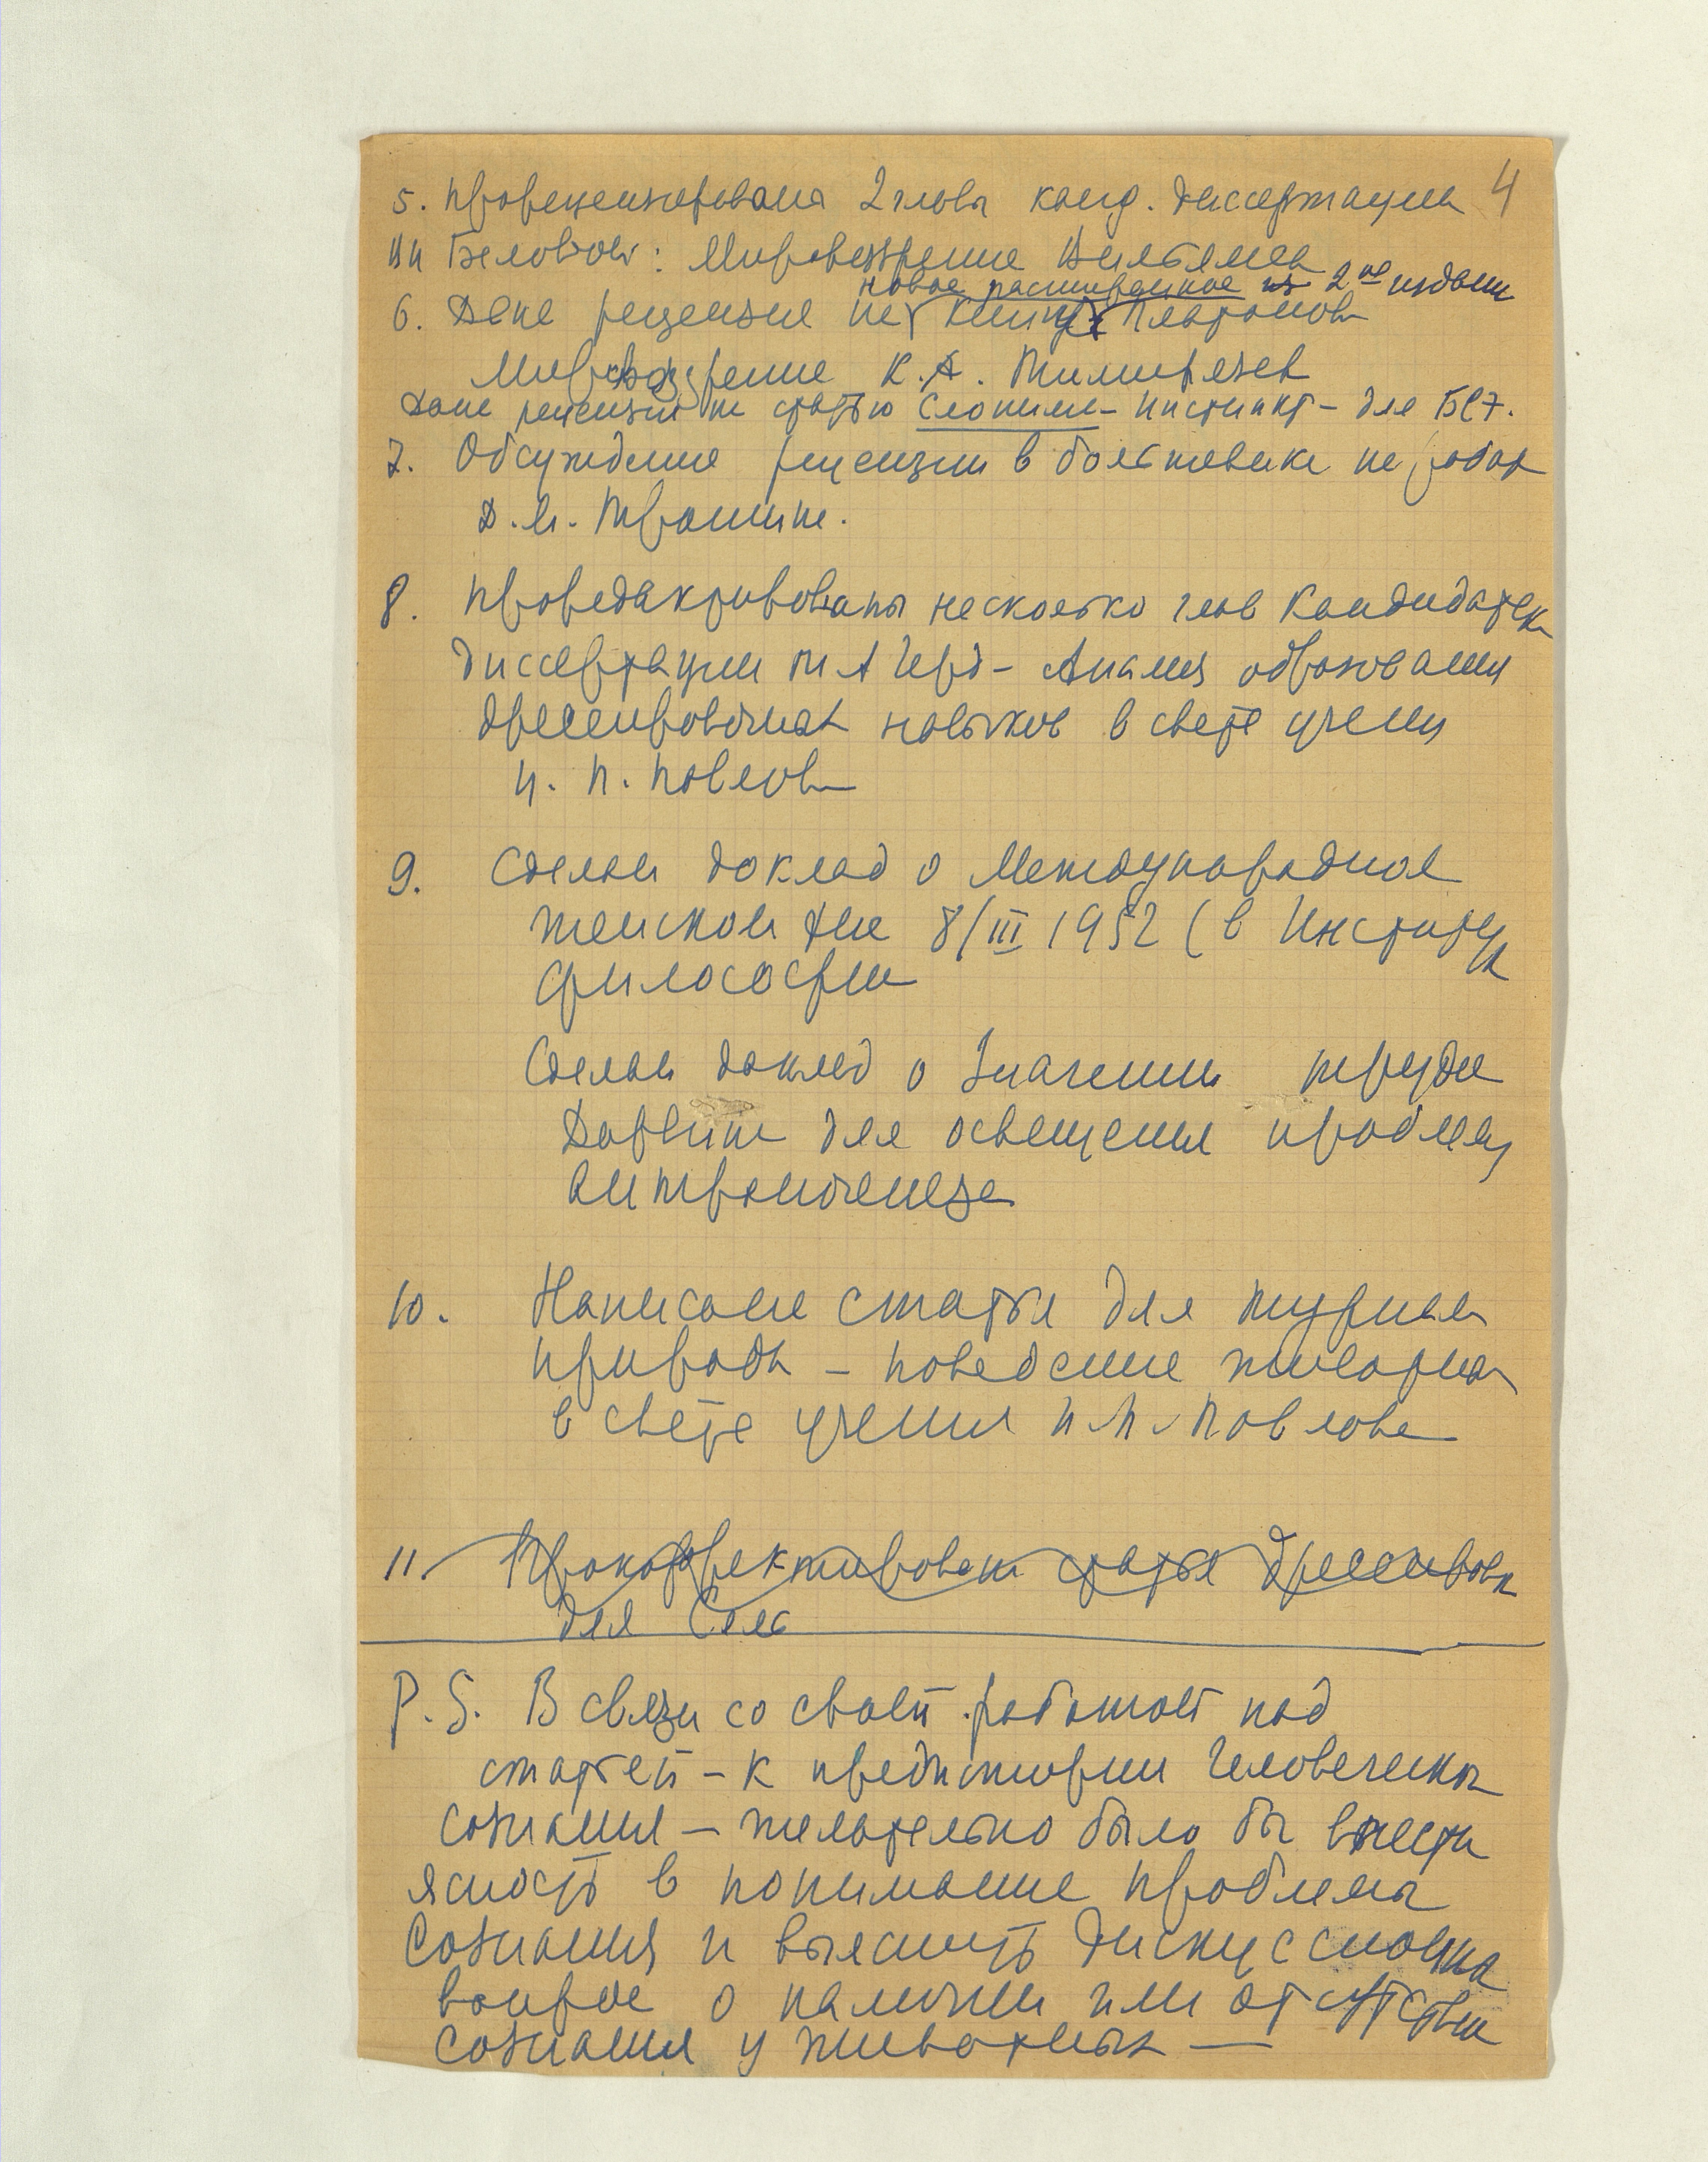 5. Прорецензирована 2 главы канд. диссертации 4
ВИ Беловой: Мировоззрение Вильямса
новое расширенное 2ое издание
6. Дана рецензия на книгу Платонова
Мировоззрение К.А. Тимирязева
Дана рецензия на статью Слоним – Инстинкт – для БСЭ.
7. Обсуждение рецензии в большевике на работу
Д.М. Трошина.
8. Проредактированы несколько глав Кандидатск
диссертации МА Герд – Анализ образования
дрессировочных навыков в свете учения
И. П. Павлова
9. Сделан доклад о Международном
женском дне 8/III 1952 (в Институте
философии
Сделан доклад о Значении труда
Дарвина для освещения проблемы
антропогенеза
10. Написана статья для журнала
природа – поведение животных
в свете учения И П Павлова
11. Прокорректирована статья Дрессировка
для
P.S. В связи со своей работой над
статьей – к предистории человеческого
сознания – желательно было бы внести
ясность в понимание проблемы
сознания и выяснить дискуссионна
вопрос о наличии или отсутствии
сознания у животных —